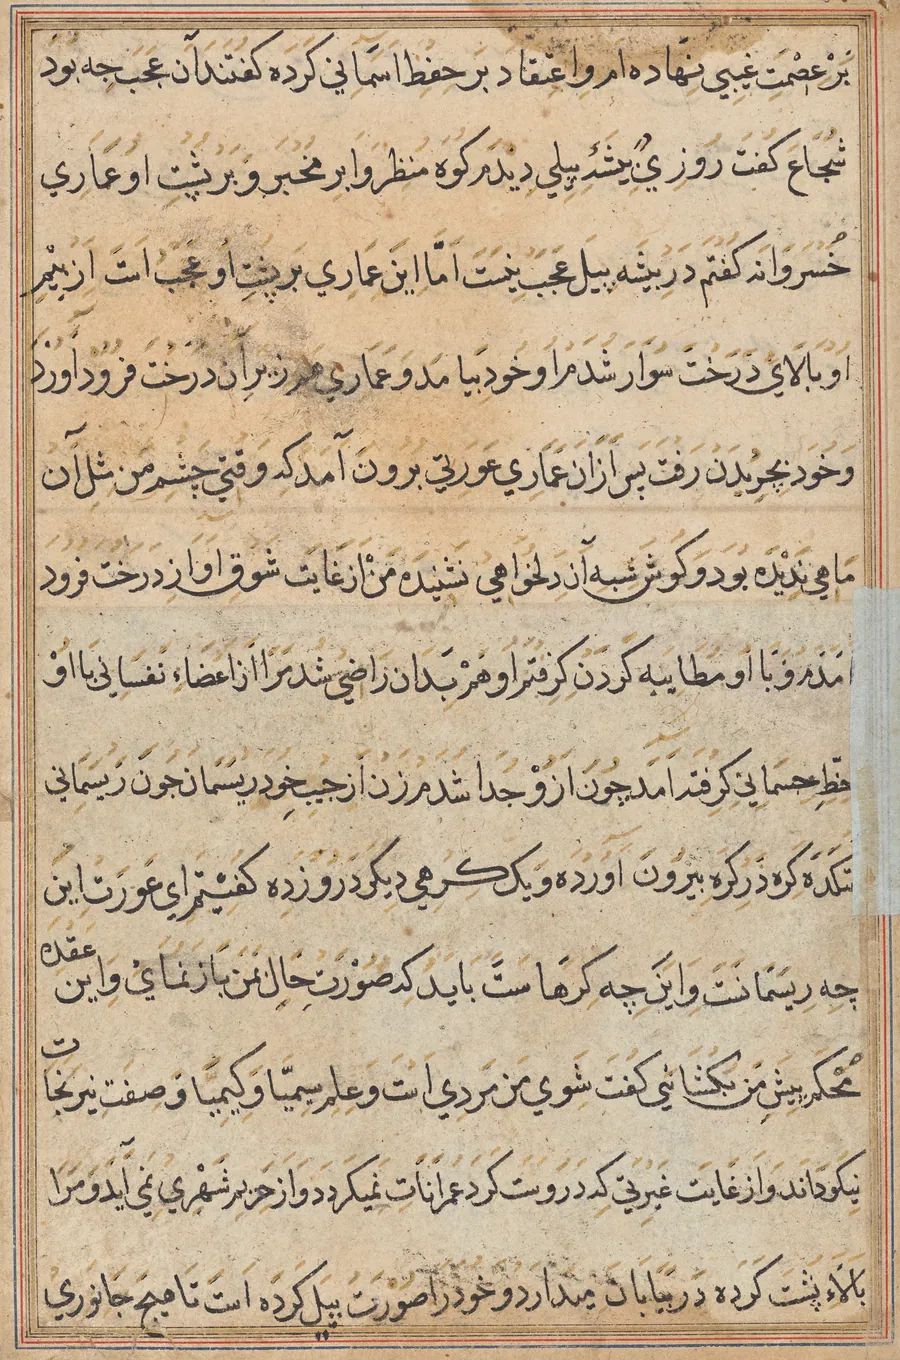 بَرْ عِصْمَتِ غَيبي نهاده ام و اِعتِقاد بر حِفظ اسمَاني كَرْدَه كفتند آن عجب جه بود
شجاع كفت روزي بيشَه پيلي ديدم كوه منظر و ابر مخبر و بر پشت او عماري
خُسرَوانه كفتم در بيشه پيل عجب نيست امّا اين عماري بر پشتِ او عجب است از بيم
او بالاي درخت سوار شدم او خود بيامد و عماري در زير آن درخت فرود آورد
و خود بچريدن رفت پس از ان عماري عورتي برون آمد كه وقتي چشم من مثل آن
ماهي نديده بود و كوش شبه آن دلخواهي نشنيده من از غايت شوق او از درخت فرود
امدم و با او مطايبه كردن كرفتم او هم بدان راضي شد مرا از اعضاء نفساني با او
حظِ جسماني كرفته آمد چون ازو جدا شدم زن از جيب خود ريسمان جون ريسماني
تكده كره در كره بيرون آورده و يك كرهي ديكر درو زده كفتم اي عورت اين
چه ريسمانست و اين چه كرهاست بايد كه صورت حال بمن باز نماي و اين عقده
محكم پيش من بكشائي كفت شوي من مردي است و علم سيميّا و كيميا و صفت نيرنجات
نيكو داند و از غايت غيرتي كه دروست كرد عمرانات نميكردد و از حريم شهري نمي آيد و مرا
بالاء پشت كرده در بيابان ميدارد و خود را صورت پيل كرده است تا هيج جانوري